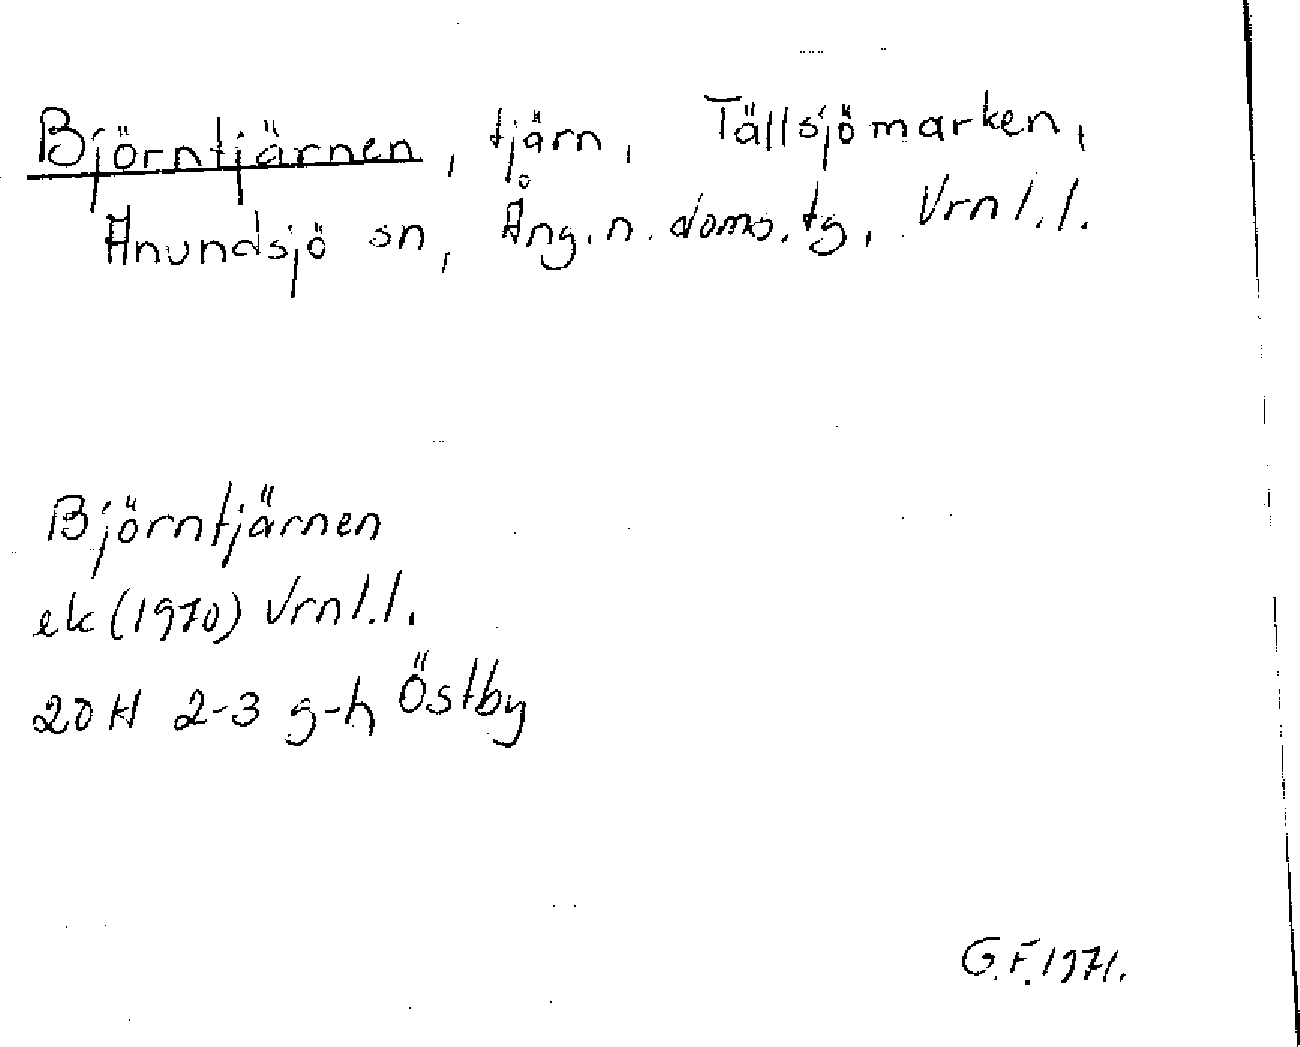 Björntjärnen, tjärn, Tällsjömarken,
Anundsjö sn, Ång. n. doms. tg, Vrnl. l.
Björntjärnen
ek (1970) Vrnl. l.
20 H 2-3 g-h Östby
G. F. 1971.